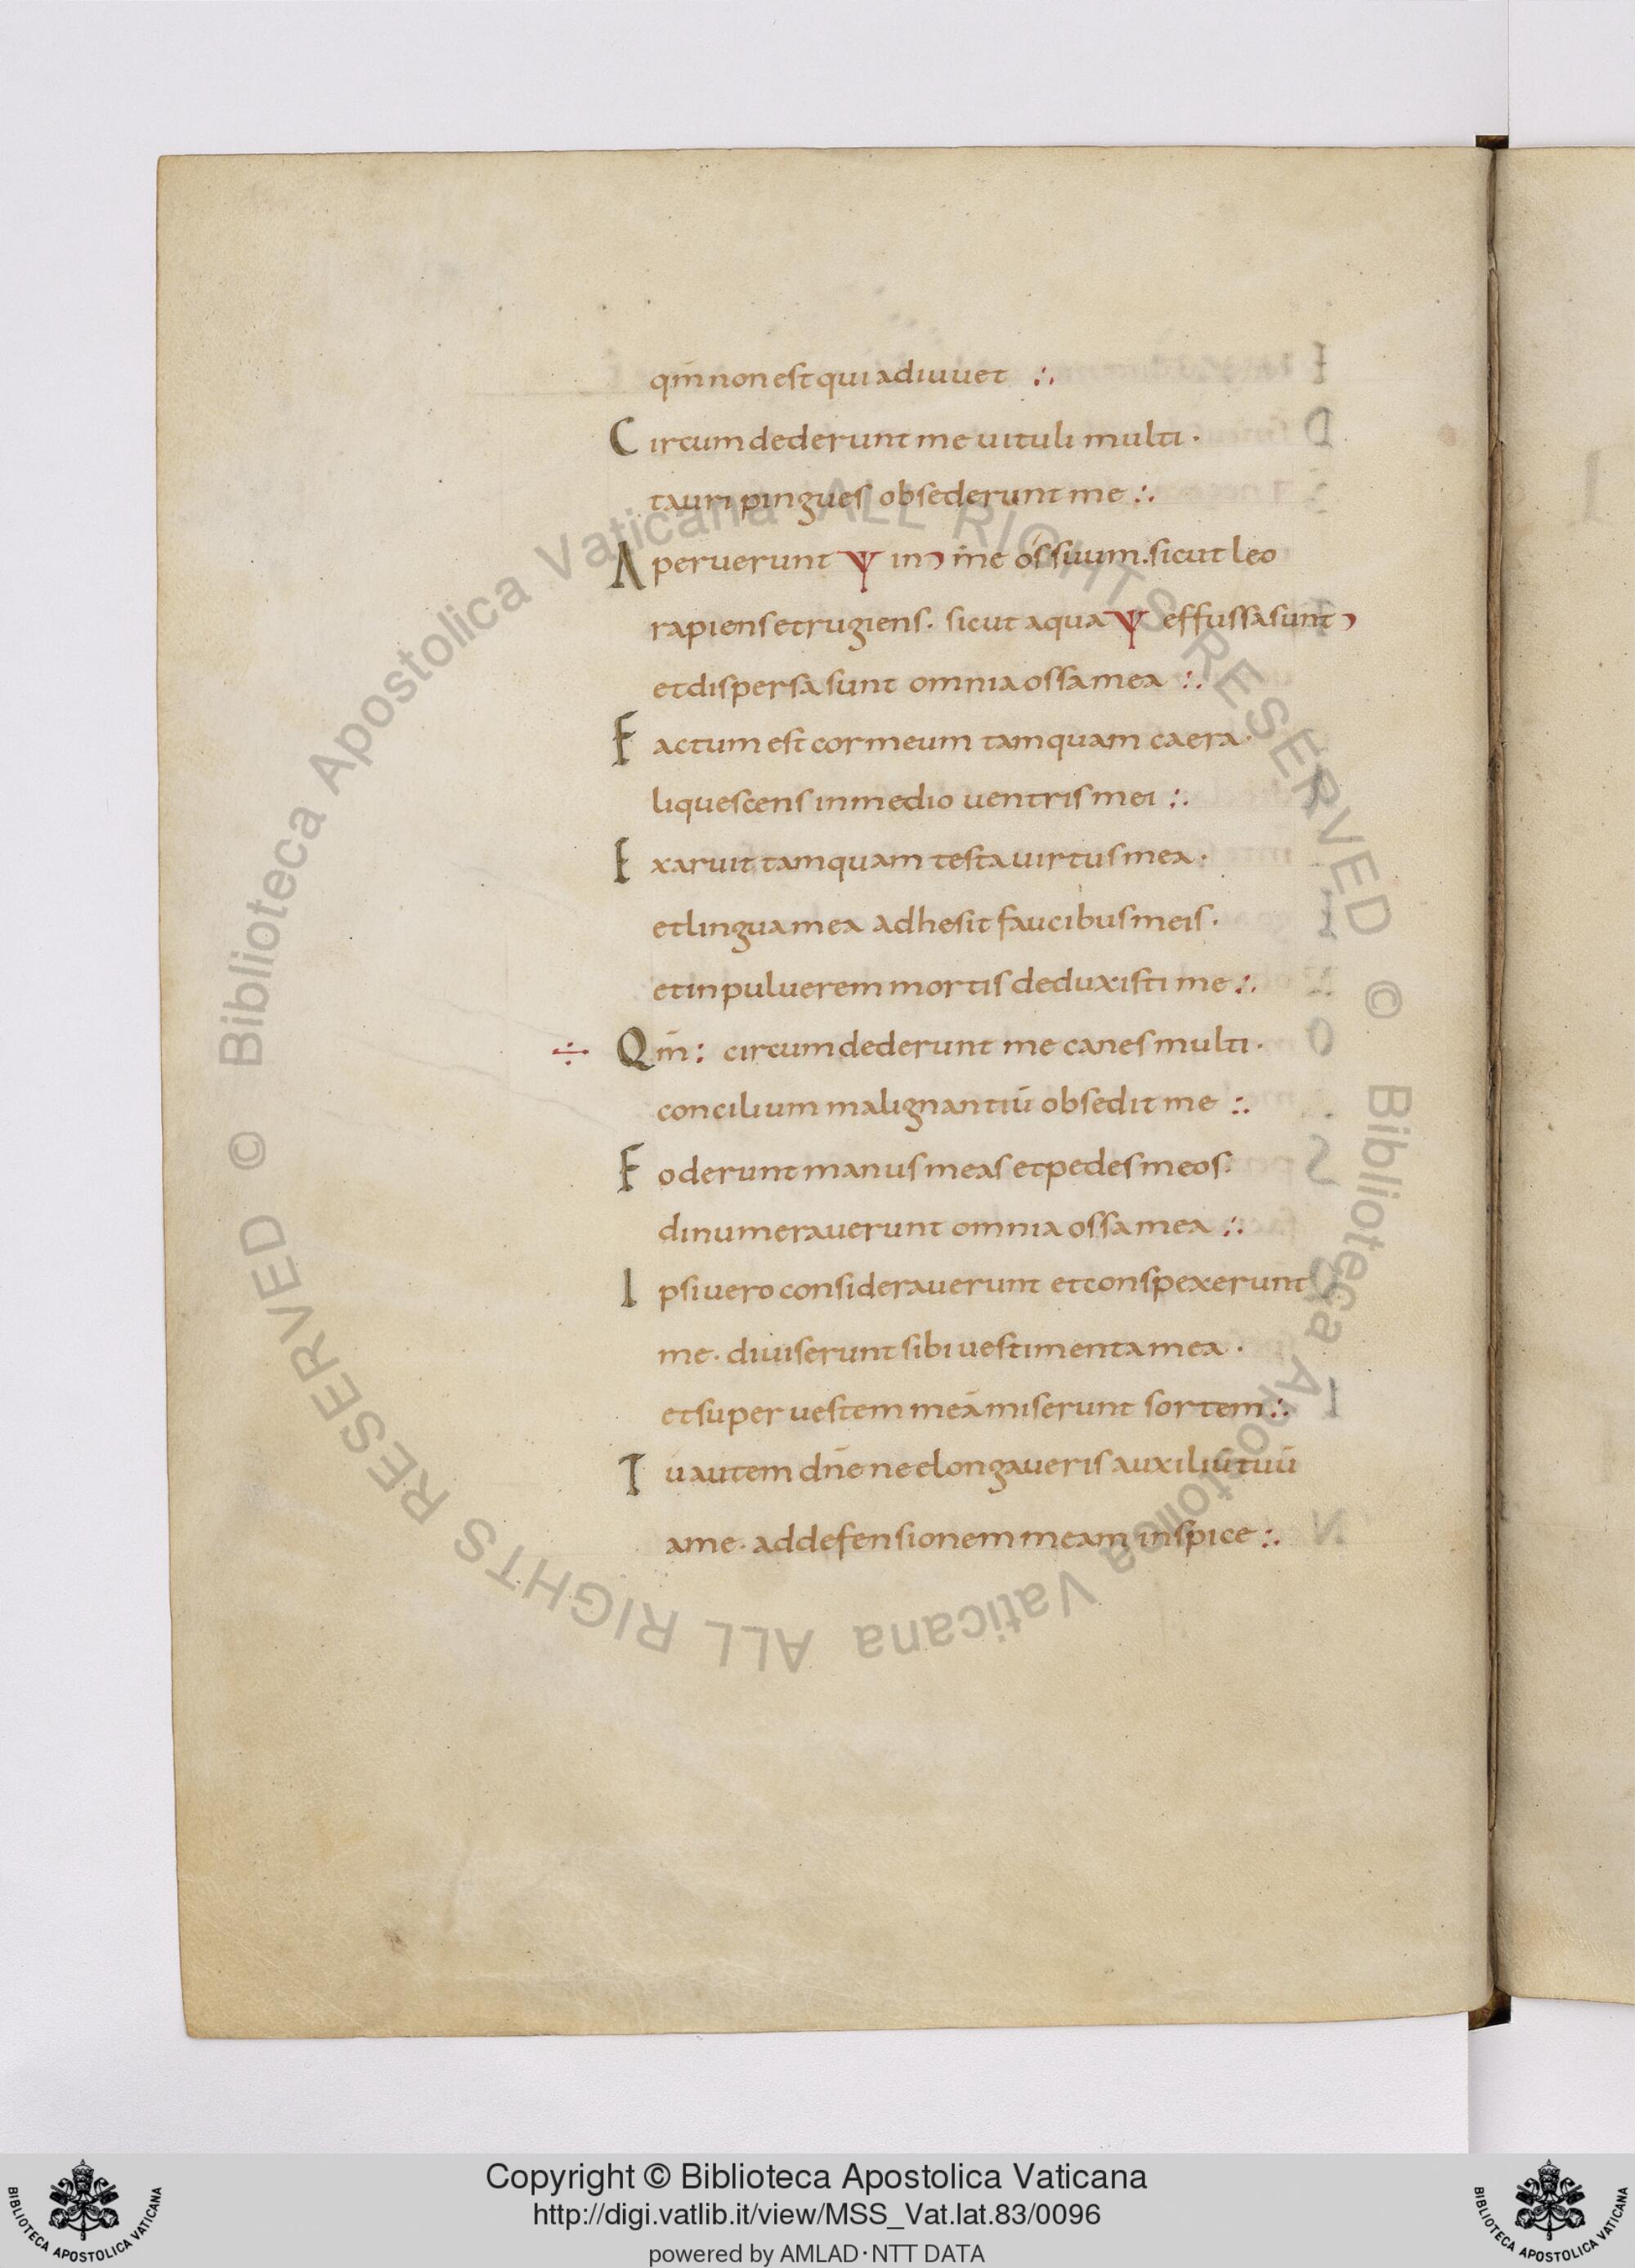 qm̄ non est qui adiuuet ∴
Circumdederunt me uituli multi ·
tauri pingues obsederunt me ∴
Aperuerunt Ѱ in ͻ me os suum. sicut leo
rapiens et rugiens. sicut aqua Ѱ effussa sunt ͻ
et dispersa sunt omnia ossa mea ∴
Factum est cor meum tamquam caera ·
liquescens in medio uentris mei ∴
Exaruit tamquam testa uirtus mea ·
et lingua mea adhesit faucibus meis ·
et in puluerem mortis deduxisti me ∴
÷ Qm̄ : circumdederunt me canes multi ·
concilium malignantiū obsedit me ∴
Foderunt manus meas et pedes meos.
dinumerauerunt omnia ossa mea ∴
Ipsi uero considerauerunt et conspexerunt
me · diuiserunt sibi uestimenta mea ·
et super uestem meā miserunt sortem ∴
Tu autem dn̄e ne elongaueris auxiliū tuū
a me · ad defensionem meam inspice ∴
© Biblioteca Apostolica Vaticana ALL RIGHTS RESERVED © Biblioteca Apostolica Vaticana ALL RIGHTS RESERVED
Copyright © Biblioteca Apostolica Vaticana
http://digi.vatlib.it/view/MSS_Vat.lat.83/0096
powered by AMLAD · NTT DATA
BIBLIOTECA APOSTOLICA VATICANA
BIBLIOTECA APOSTOLICA VATICANA